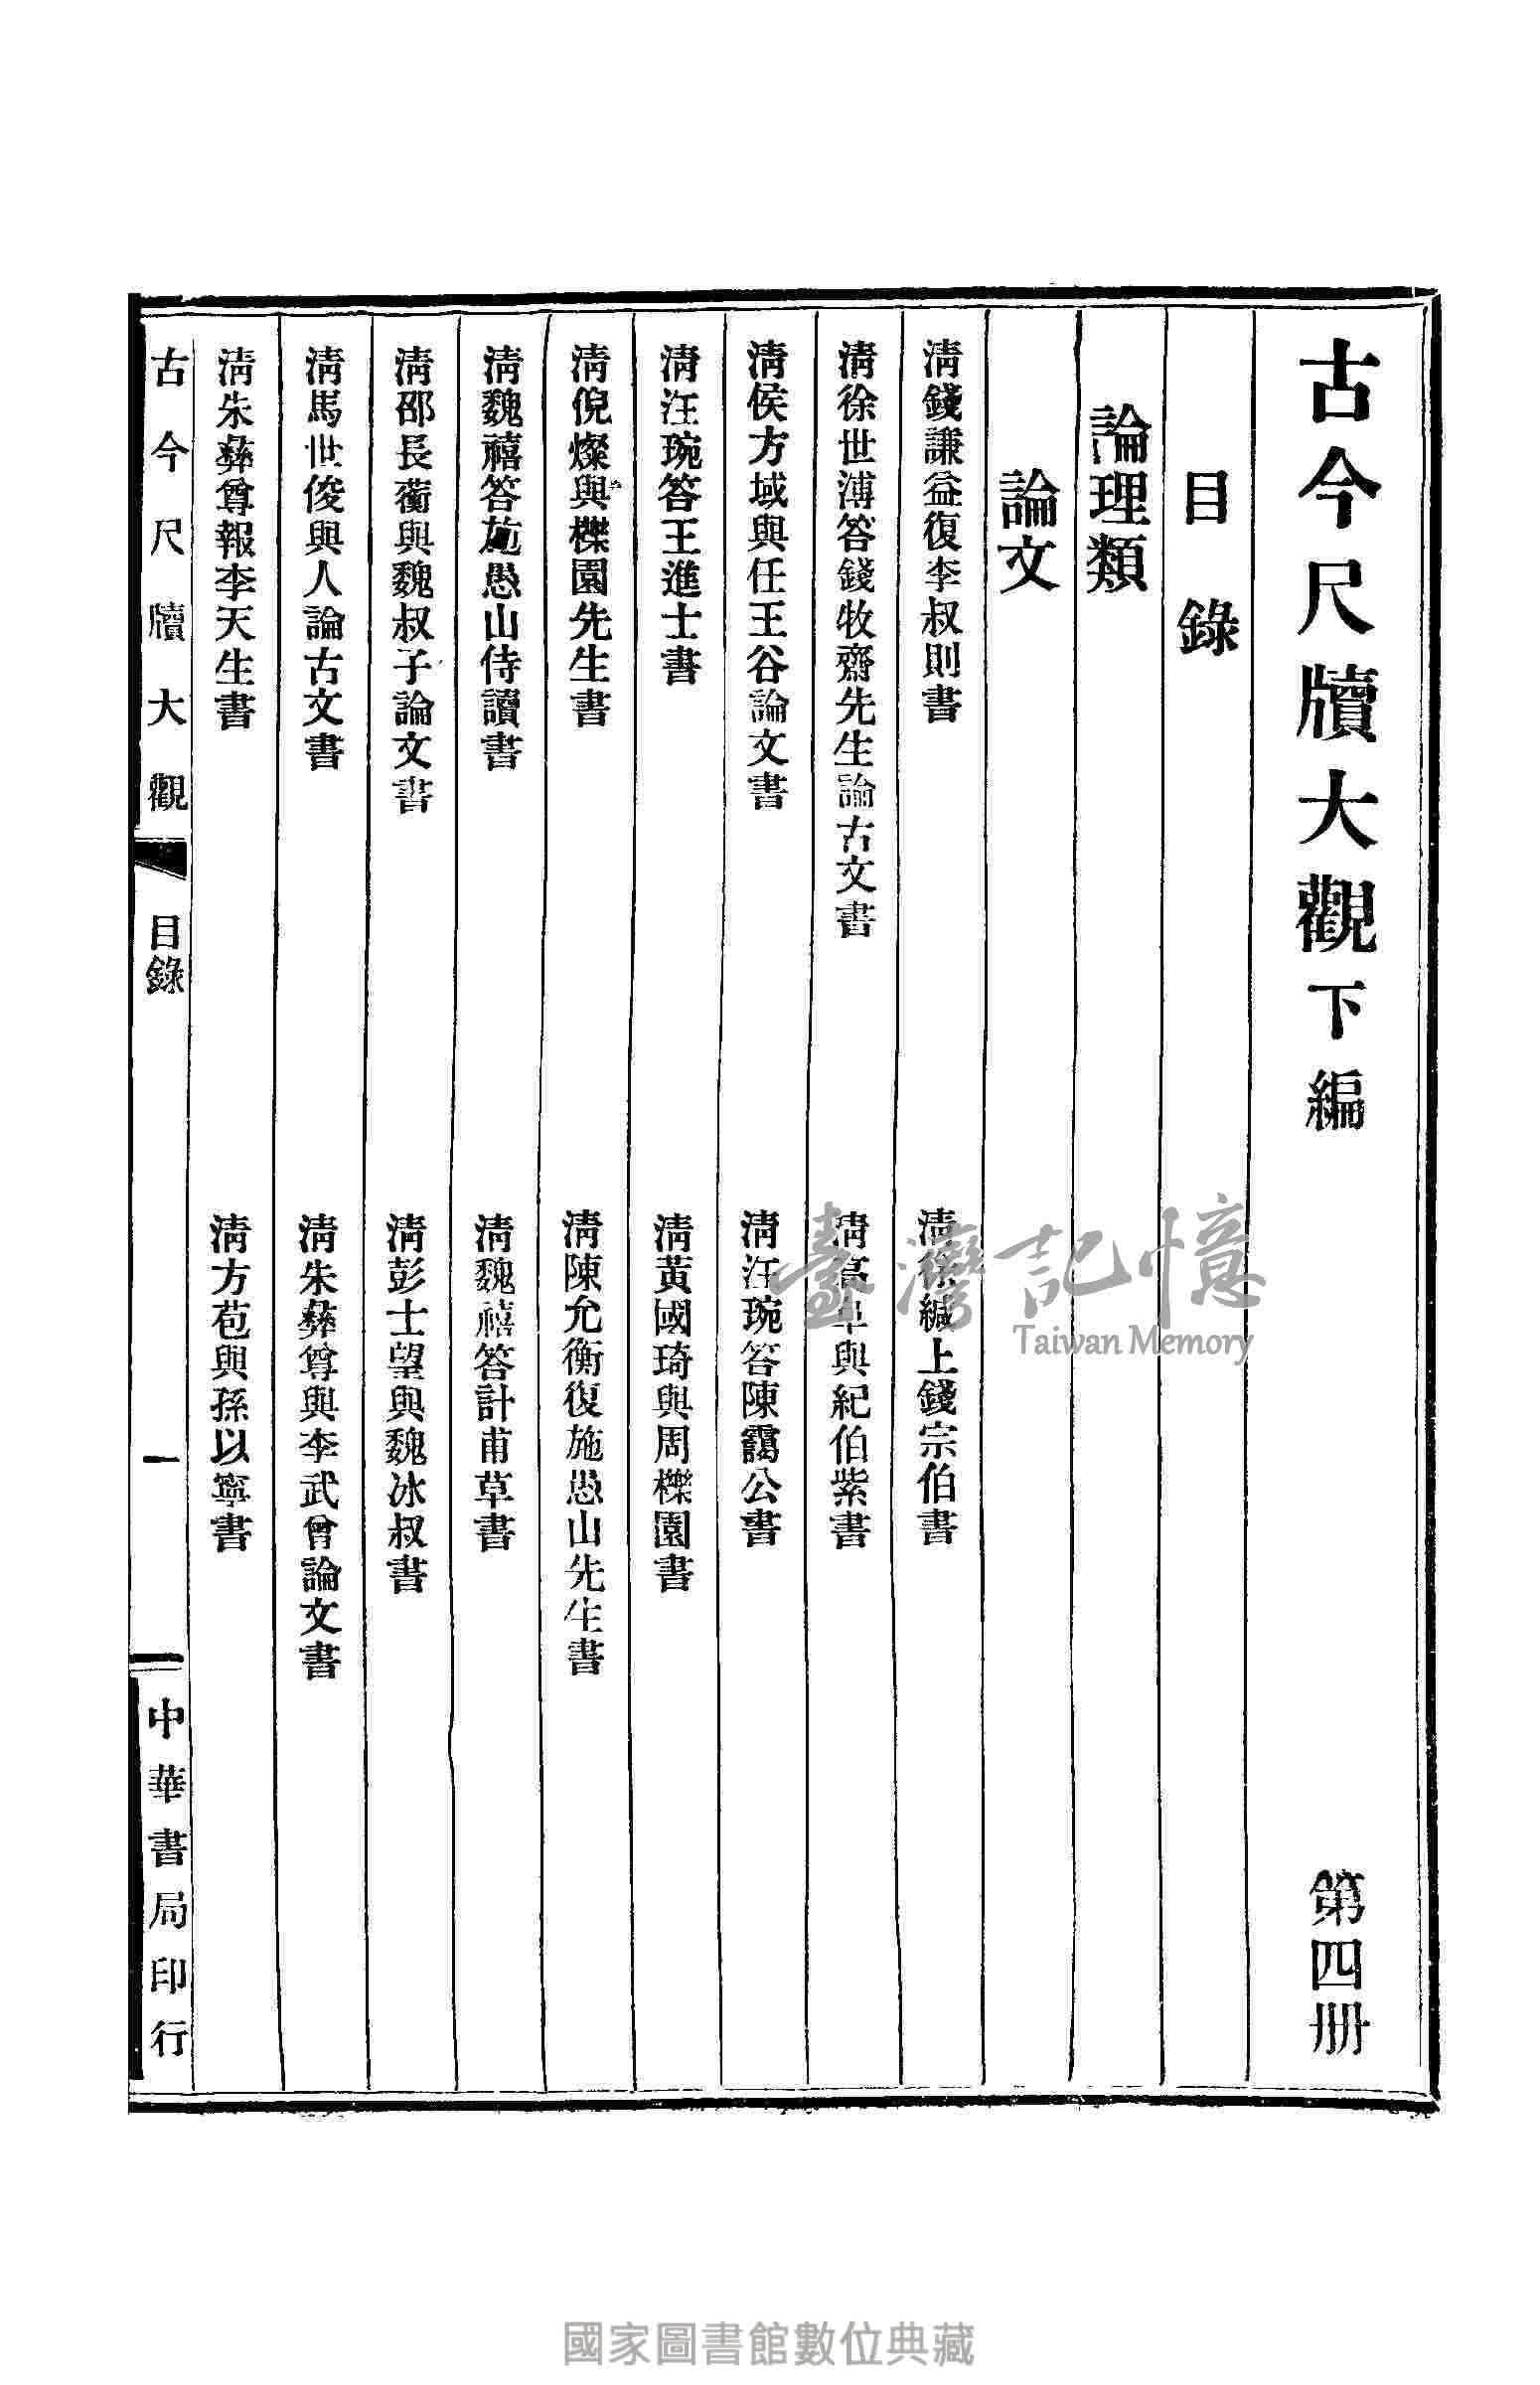 古今尺牘大觀下編 第四册
目錄
論理類
論文
清錢謙益復李叔則書 清徐緘上錢宗伯書
清徐世溥答錢牧齋先生論古文書 清高阜與紀伯紫書
清侯方域與任王谷論文書 清汪琬答陳靄公書
清汪琬答王進士書 清黃國琦與周櫟園書
清倪燦與櫟園先生書 清陳允衡復施愚山先生書
清魏禧答施愚山侍讀書 清魏禧答計甫草書
清邵長蘅與魏叔子論文書 清彭士望與魏冰叔書
清馬世俊與人論古文書 清朱彝尊與李武曾論文書
清朱彝尊報李天生書 清方苞與孫以寧書
古今尺牘大觀 目錄 一 中華書局印行
臺灣記憶
Taiwan Memory
國家圖書館數位典藏